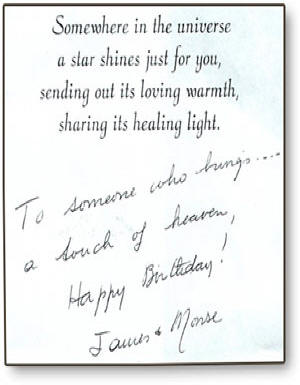 Somewhere in the universe
a star shines just for you,
sending out its loving warmth,
sharing its healing light.
To someone who brings....
a touch of heaven,
Happy Birthday!
James & Monse